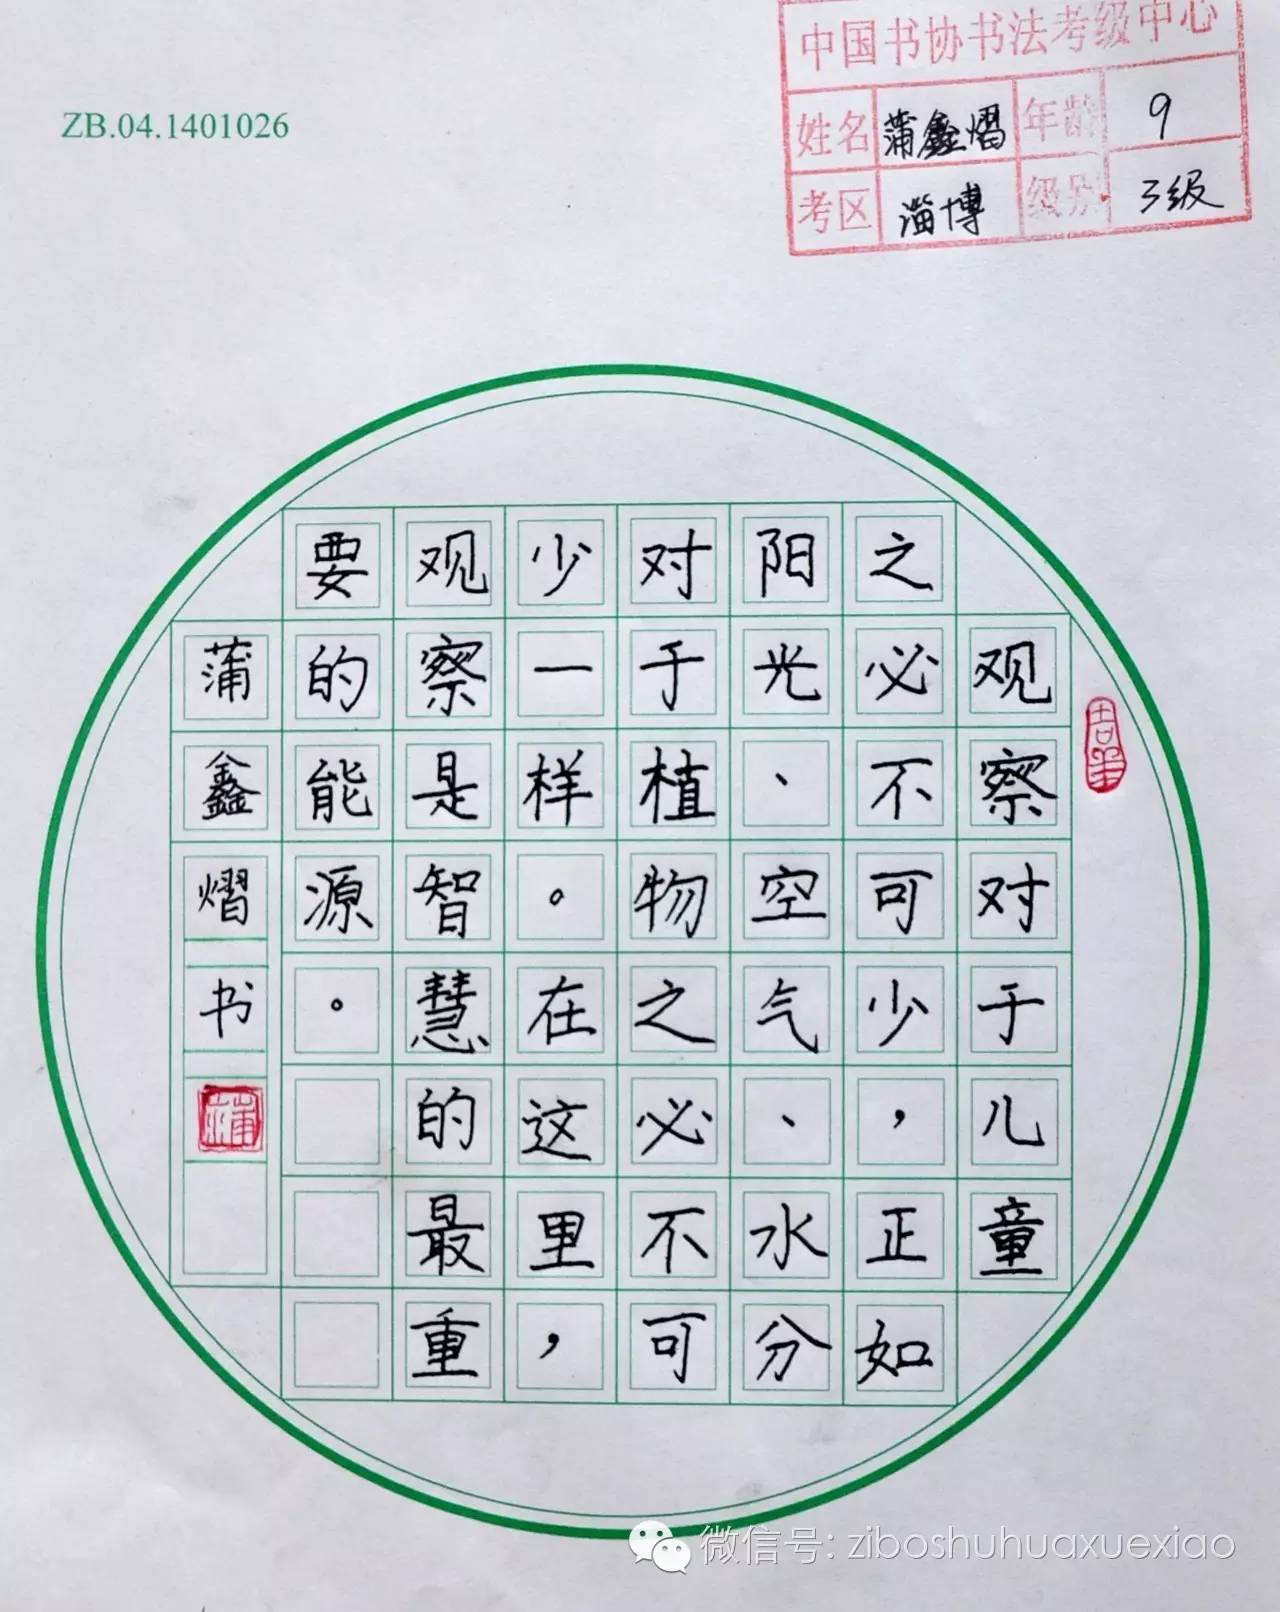 中国书协书法考级中心
姓名 蒲鑫熠 年龄 9
考区 淄博 级别 3级
ZB.04.1401026
观察对于儿童
之必不可少，正如
阳光、空气、水分
对于植物之必不可
少一样。在这里，
观察是智慧的最重
要的能源。
蒲鑫熠书
蒲
微信号: ziboshuhuaxuexiao